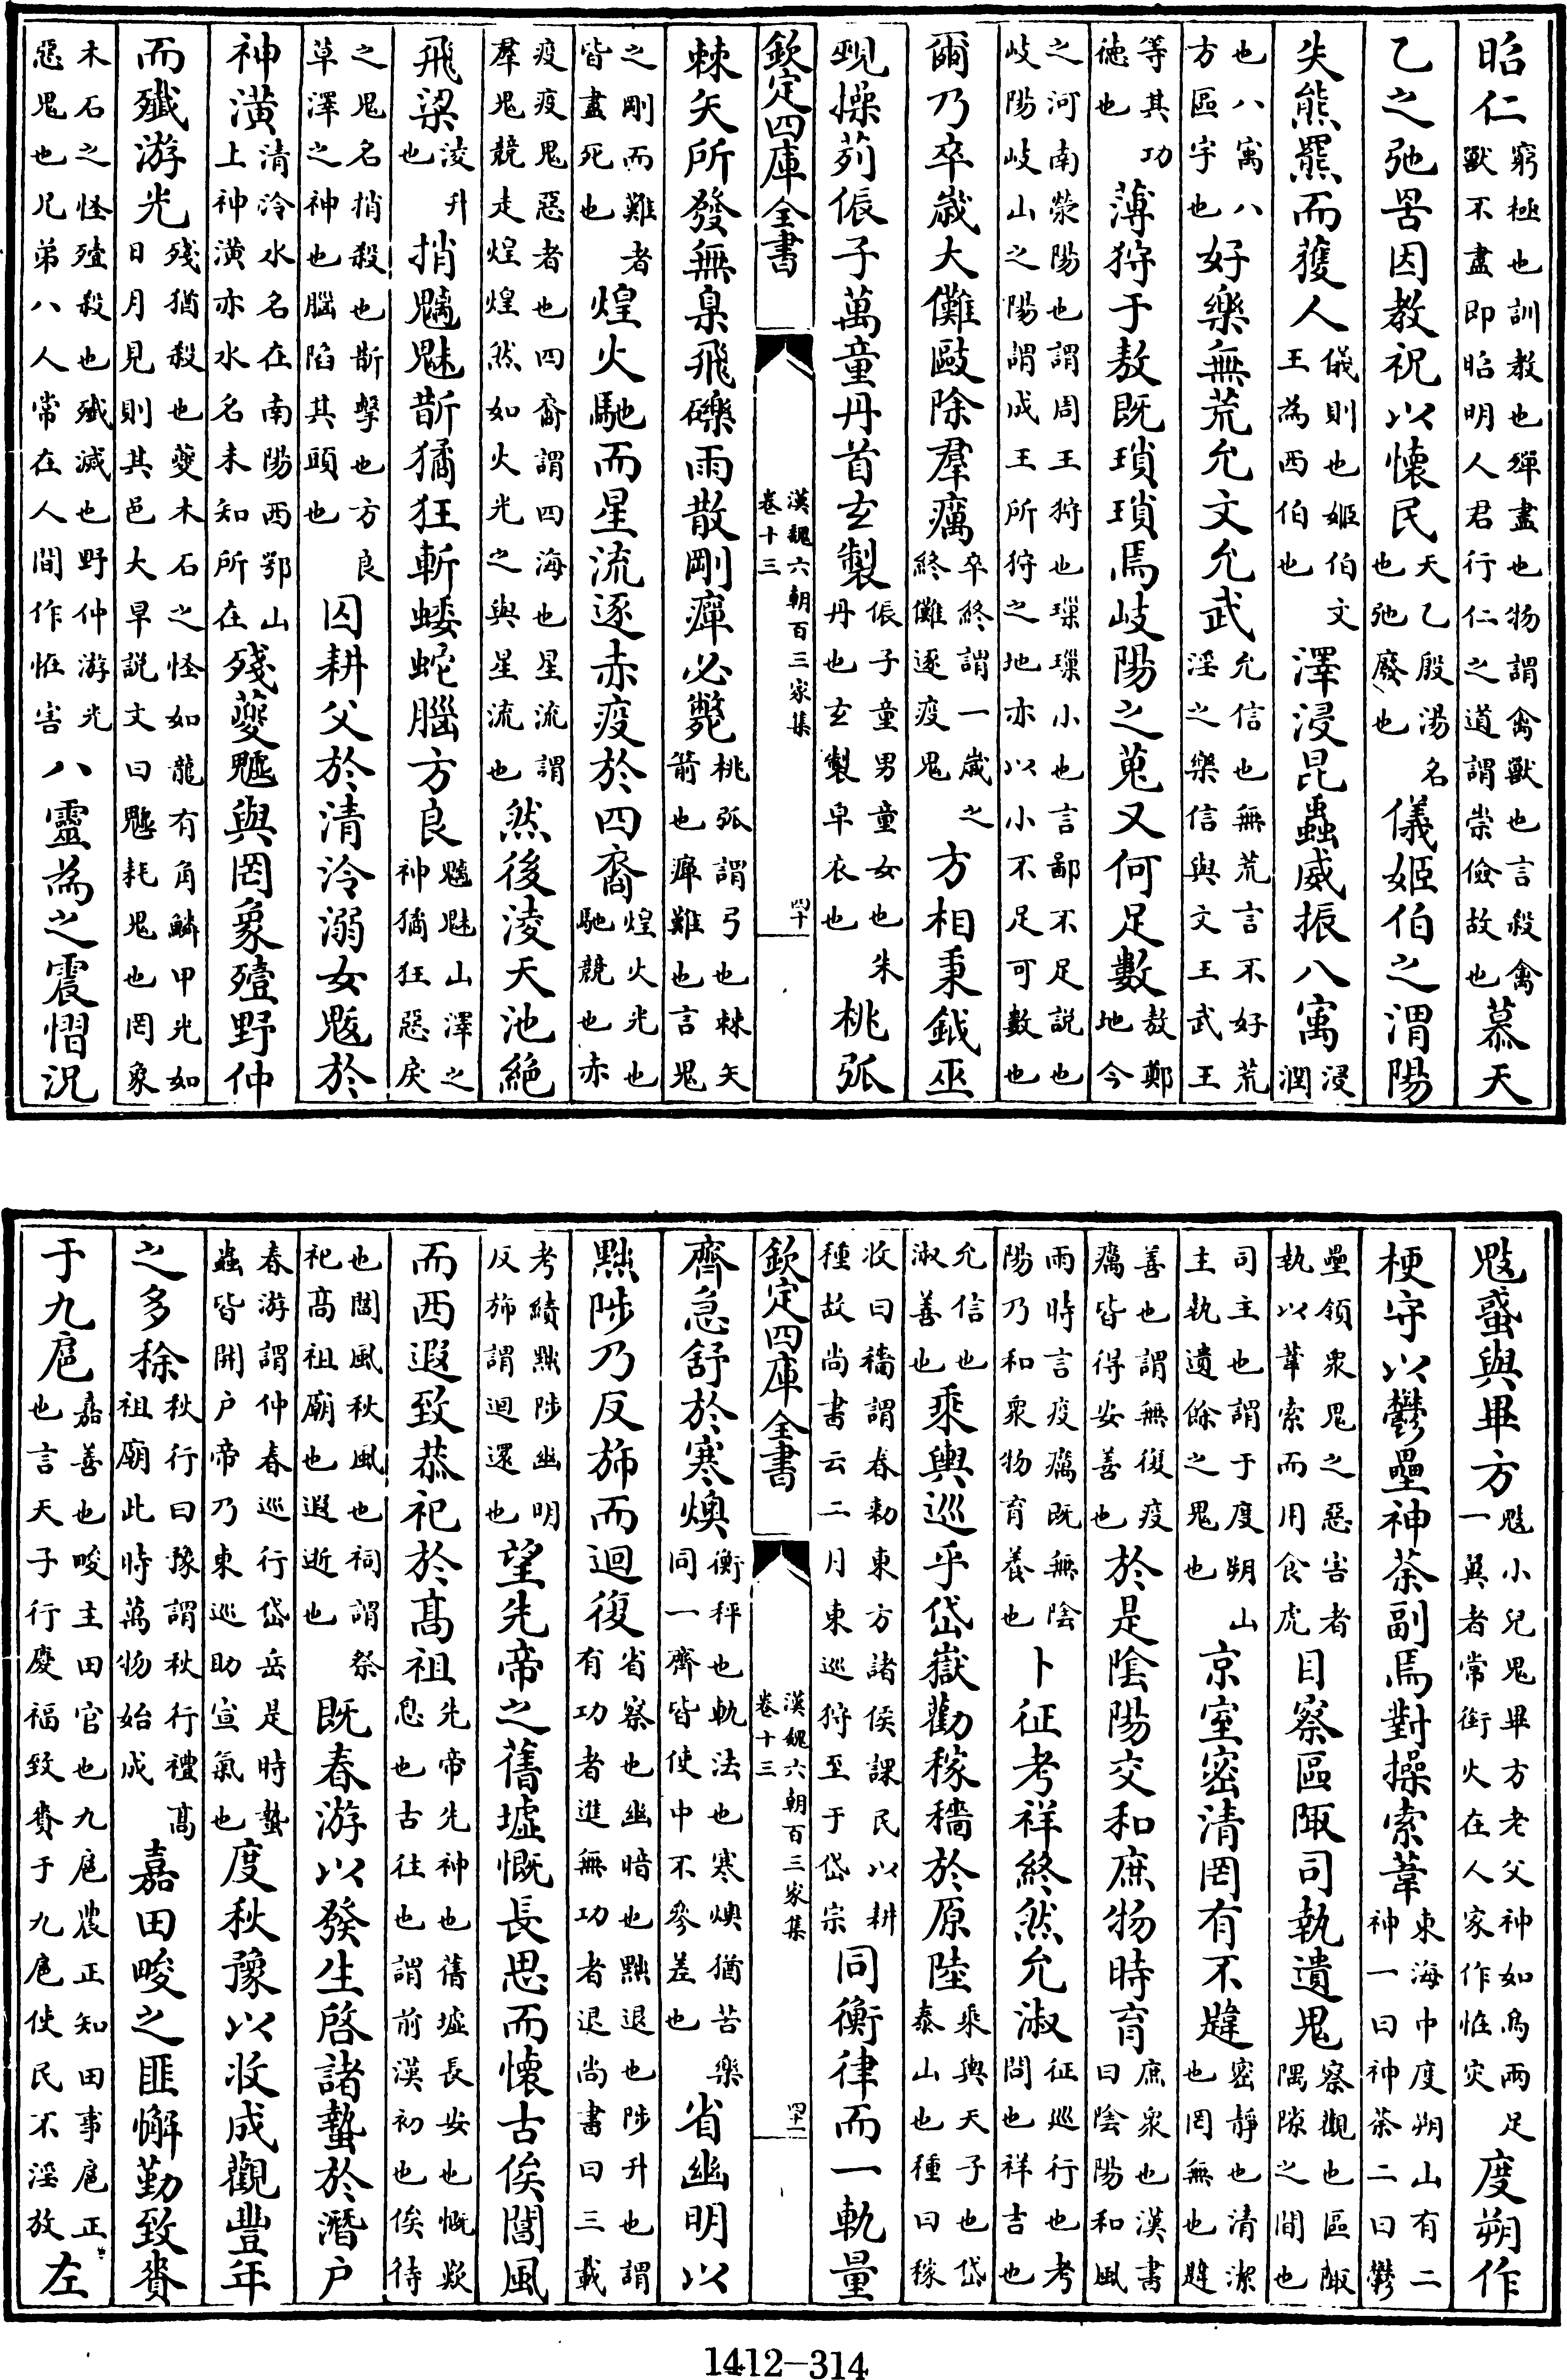 昭仁窮極也訓教也殫盡也物謂禽獸也言殺禽獸不盡即昭明人君行仁之道謂崇儉故也慕天
乙之弛罟因教祝以懷民天乙殷湯名也弛廢也儀姬伯之渭陽
失熊羆而獲人儀則也姬伯文王為西伯也澤浸昆蟲威振八寓浸潤
也八寓八方區宇也好樂無荒允文允武允信也無荒言不好荒淫之樂信與文王武王
等其功德也薄狩于敖既瑣瑣焉岐陽之蒐又何足數敖鄭地今
之河南滎陽也謂周王狩也璅璅小也言鄙不足說也岐陽岐山之陽謂成王所狩之地亦以小不足可數也
爾乃卒歲大儺毆除羣癘卒終謂一歲之終儺逐疫鬼方相秉鉞巫
覡操茢侲子萬童丹首玄製侲子童男童女也朱丹也玄製皁衣也桃弧
欽定四庫全書 漢魏六朝百三家集 卷十三 四十
棘矢所發無臬飛礫雨散剛癉必斃桃弧謂弓也棘矢箭也癉難也言鬼
之剛而難者皆盡死也煌火馳而星流逐赤疫於四裔煌火光也馳競也赤
疫疫鬼惡者也四裔謂四海也星流謂羣鬼競走煌煌然如火光之與星流也然後淩天池絶
飛梁淩升也捎魑魅斮獝狂斬蜲蛇腦方良魑魅山澤之神獝狂惡戾
之鬼名捎殺也斮擊也方良草澤之神也腦陷其頭也囚耕父於清泠溺女魃於
神潢清泠水名在南陽西鄂山上神潢亦水名未知所在殘夔魖與罔象殪野仲
而殲游光殘猶殺也夔木石之怪如龍有角鱗甲光如日月見則其邑大旱說文曰魖耗鬼也罔象
木石之怪殪殺也殲滅也野仲游光惡鬼也兄弟八人常在人間作恠害八靈為之震慴況
鬾蜮與畢方鬾小兒鬼畢方老父神如鳥兩足一翼者常銜火在人家作恠災度朔作
梗守以鬱壘神荼副焉對操索葦東海中度朔山有二神一曰神荼二曰鬱
壘領衆鬼之惡害者執以葦索而用食虎目察區陬司執遺鬼察觀也區陬隅隙之間也
司主也謂于度朔山主執遺餘之鬼也京室密清罔有不韙密靜也清潔也罔無也韙
善也謂無復疫癘皆得安善也於是陰陽交和庶物時育庶衆也漢書曰陰陽和風
雨時言疫癘既無陰陽乃和衆物育養也卜征考祥終然允淑征巡行也考問也祥吉也
允信也淑善也乘輿巡乎岱嶽勸稼穡於原陸乘輿天子也岱泰山也種曰稼
收曰穡謂春勑東方諸侯課民以耕種故尚書云二月東巡狩至于岱宗同衡律而一軌量
欽定四庫全書 漢魏六朝百三家集 卷十三 四十一
齊急舒於寒燠衡秤也軌法也寒燠猶苦樂同一齊皆使中不參差也省幽明以
黜陟乃反斾而迴復省察也幽暗也黜退也陟升也謂有功者進無功者退尚書曰三載
考績黜陟幽明反斾謂迴還也望先帝之舊墟慨長思而懷古俟閶風
而西遐致恭祀於髙祖先帝先神也舊墟長安也慨歎息也古往也謂前漢初也俟待
也閶風秋風也祠謂祭祀髙祖廟也遐逝也既春游以發生啓諸蟄於潛戶
春游謂仲春巡行岱岳是時蟄蟲皆開户帝乃東巡助宣氣也度秋豫以收成觀豐年
之多稌秋行曰豫謂秋行禮髙祖廟此時萬物始成嘉田畯之匪懈勤致賚
于九扈嘉善也畯主田官也九扈農正知田事扈正也言天子行慶福致賚于九扈使民不淫放左
1412-314